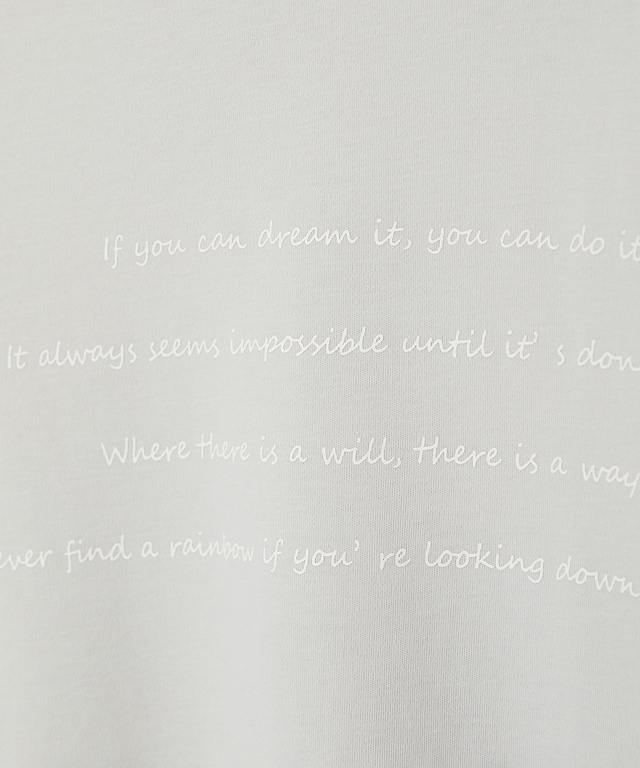 If you can dream it, you can do it
It always seems impossible until it' s don
Where there is a will, there is a way
ever find a rainbow if you' re looking down